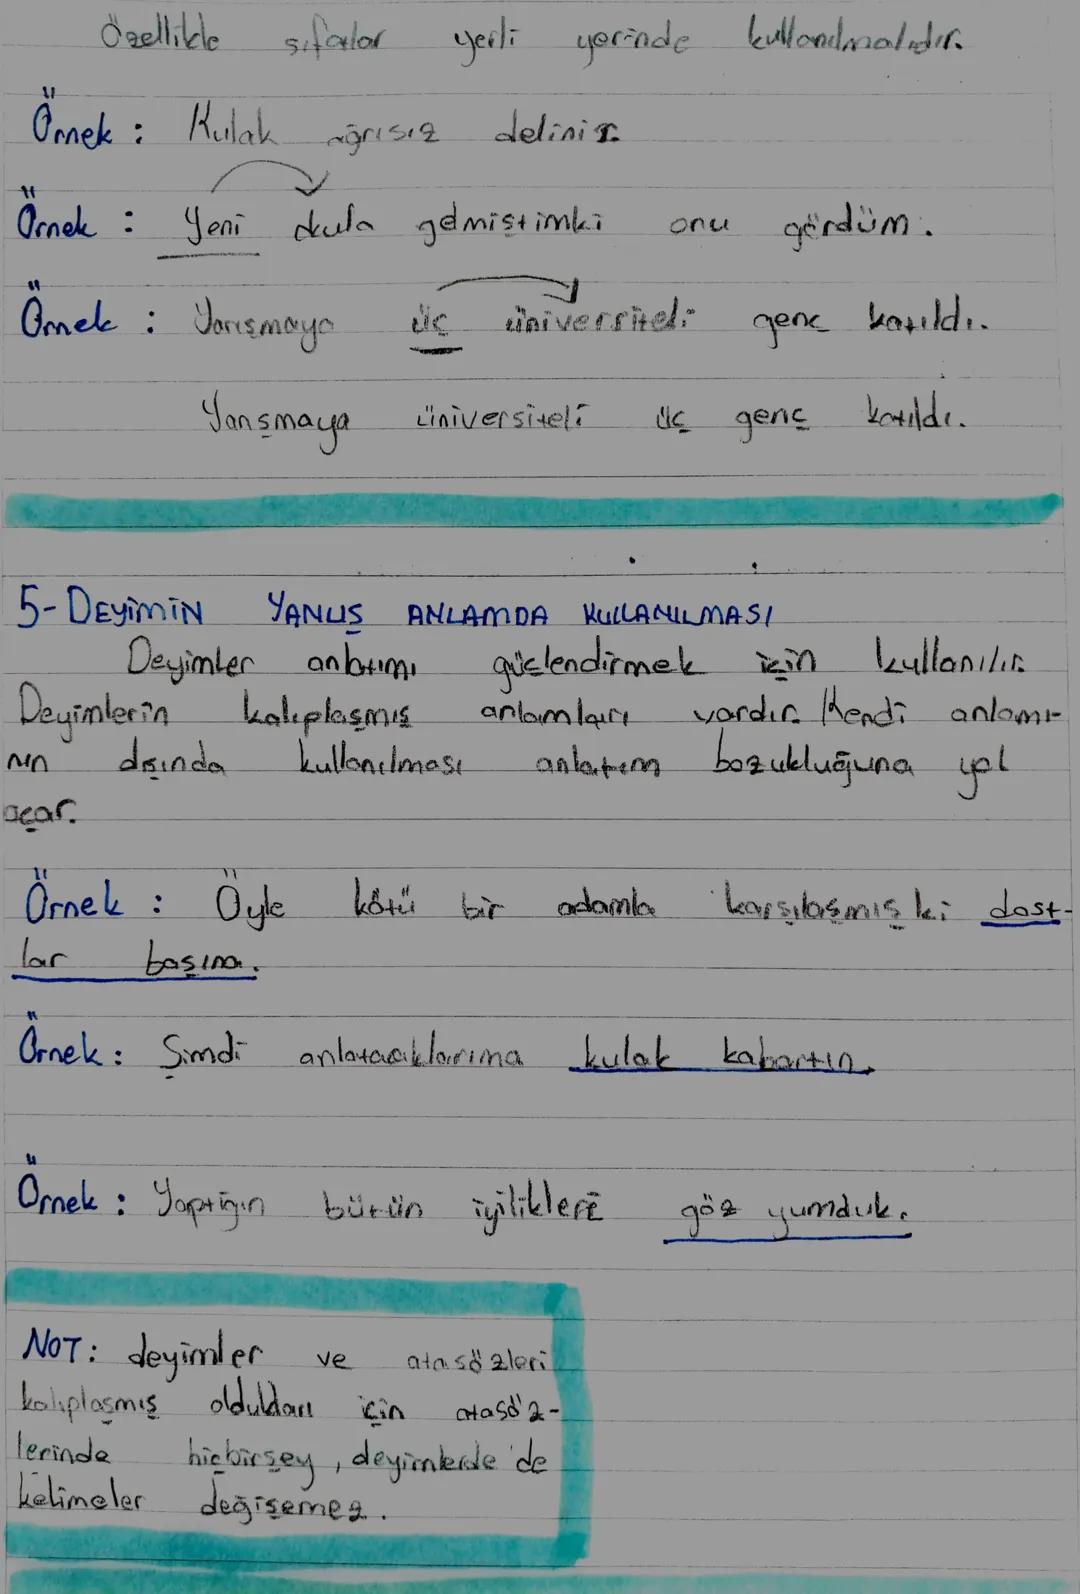 Özellikle sıfatlar yerli yerinde kullanılmalıdır.
Örnek : Kulak ağrısız delinir.
Örnek : Yeni okula gelmiştimki onu gördüm.
Örnek : Yarışmaya üç üniversiteli genç katıldı.
Yarışmaya üniversiteli üç genç katıldı.
5- DEYİMİN YANLIŞ ANLAMDA KULLANILMASI
Deyimler anlatımı güçlendirmek için kullanılır.
Deyimlerin kalıplaşmış anlamları vardır. Kendi anlamı-
nın dışında kullanılması anlatım bozukluğuna yol
açar.
Örnek : Öyle kötü bir adamla karşılaşmış ki dost-
lar başına.
Örnek : Şimdi anlatacaklarıma kulak kabartın.
Örnek : Yaptığın bütün iyiliklere göz yumduk.
NOT: deyimler ve atasözleri
kalıplaşmış oldukları için atasöz-
lerinde hiçbirşey, deyimlerde de
kelimeler değişemez.